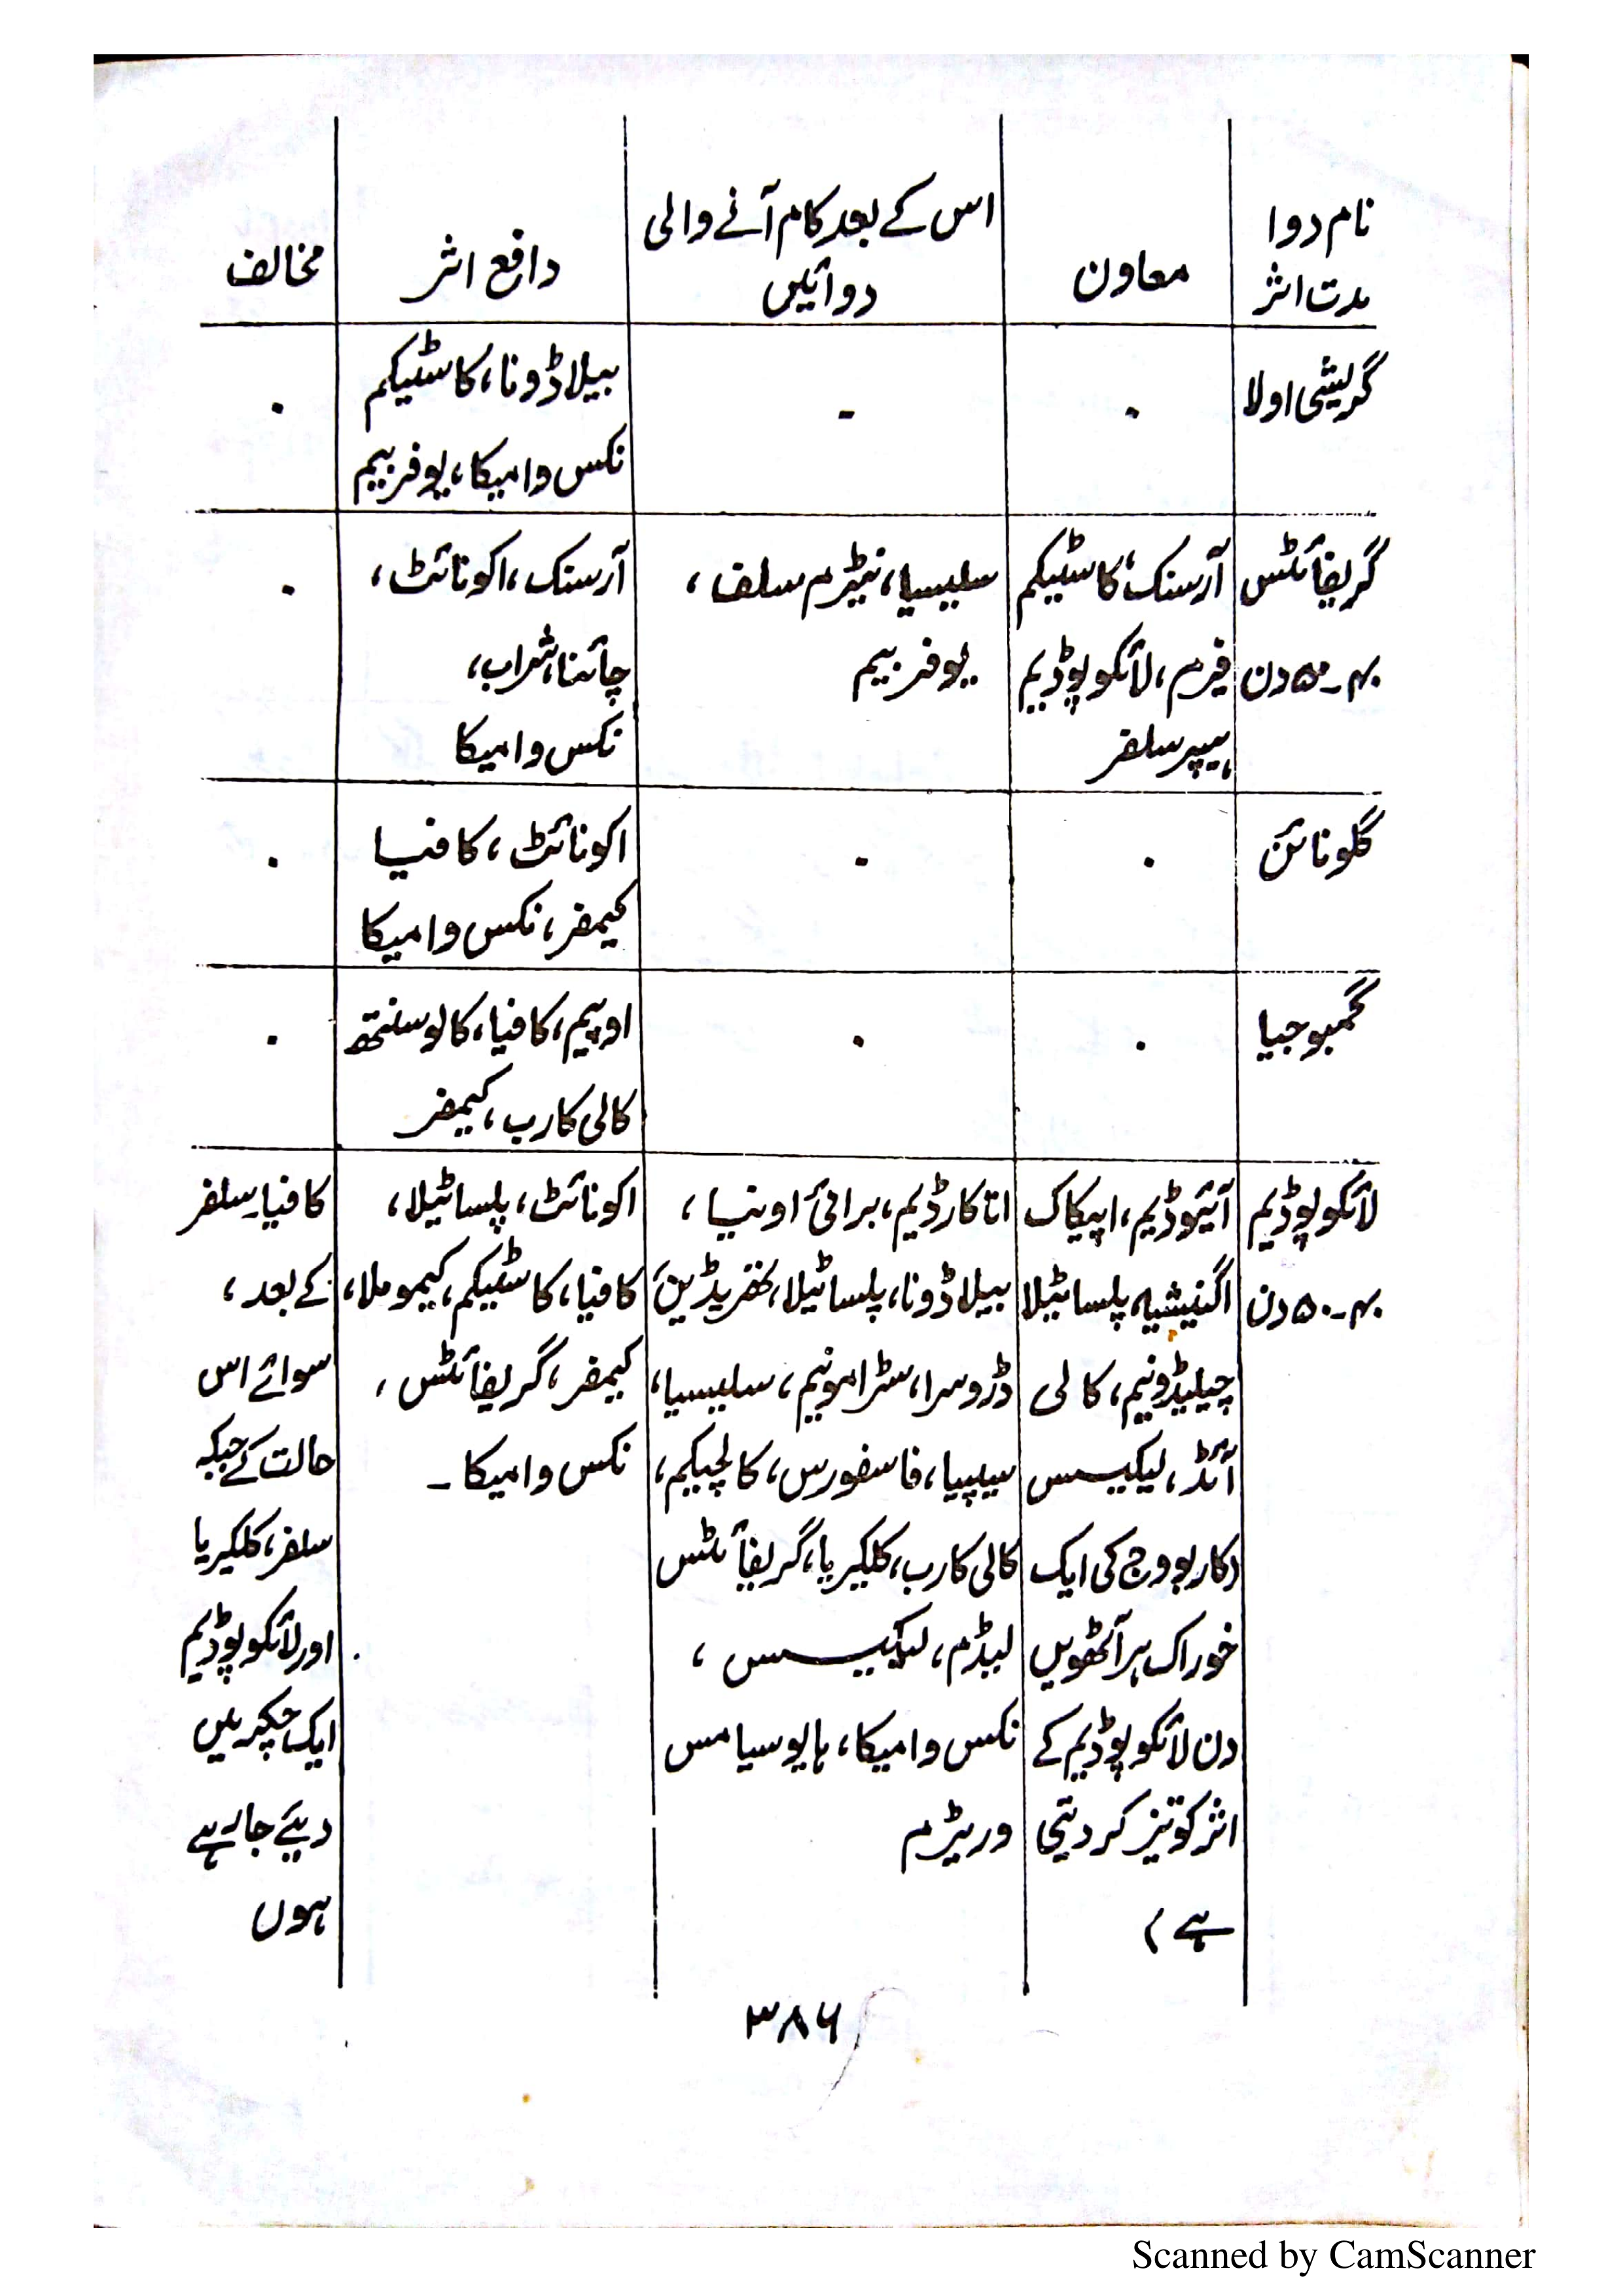 نام دوا
مدت اثر
معاون
اس کے بعد کام آنے والی
دوائیں
دافع اثر
مخالف
گریشی اولا
.
-
بیلاڈونا، کاسٹیکم
نکس وامیکا، یوفربیم
.
گریفائٹس
۴۰-۵۰ دن
آرسنک، کاسٹیکم
فیرم، لائکوپوڈیم
ہیپر سلفر
سلیسیا، نیٹرم سلف،
یوفربیم
آرسنک، اکونائٹ،
چائنا، شراب،
نکس وامیکا
.
گلونائن
.
.
اکونائٹ، کافیا
کیمفر، نکس وامیکا
.
گمبوجیا
.
.
اوپیم، کافیا، کالوسنتھ
کالی کارب، کیمفر
.
لائکوپوڈیم
۴۰-۵۰ دن
آئیوڈیم، اپیکاک
اگنیشیہ، پلساٹیلا
چیلیڈونیم، کالی
آئڈ، لیکیسس
(کاربووج کی ایک
خوراک ہر آٹھویں
دن لائکوپوڈیم کے
اثر کو تیز کر دیتی
ہے)
اناکارڈیم، برائی اونیا،
بیلاڈونا، پلساٹیلا،
ڈروسرا، سٹرامونیم، سلیسیا،
سیپیا، فاسفورس، کالچیکم،
کالی کارب، کلکیریا، گریفائٹس
لیڈم، لیکیسس،
نکس وامیکا، ہایوسیامس
وریٹرم
اکونائٹ، پلساٹیلا،
کافیا، کاسٹیکم، کیموملا،
کیمفر، گریفائٹس،
نکس وامیکا۔
کافیا۔ سلفر
کے بعد،
سوائے اس
حالت کے جبکہ
سلفر، کلکیریا
اور لائکوپوڈیم
ایک چکر میں
دیئے جا رہے
ہوں
۳۸۶
Scanned by CamScanner